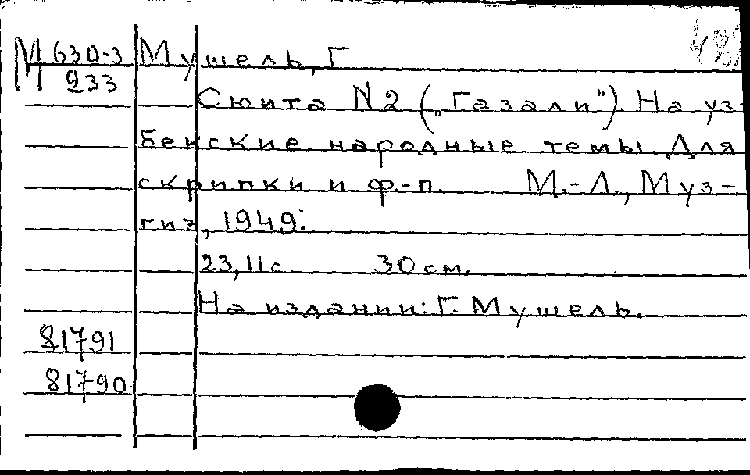 М 630-3 Мушель, Г
233
Сюита N2 („Газали"). На уз-
бекские народные темы. Для
скрипки и ф-п. М.-Л., Муз-
гиз, 1949.
23, 11 с. 30 см.
На издании: Г. Мушель.
81791
81790